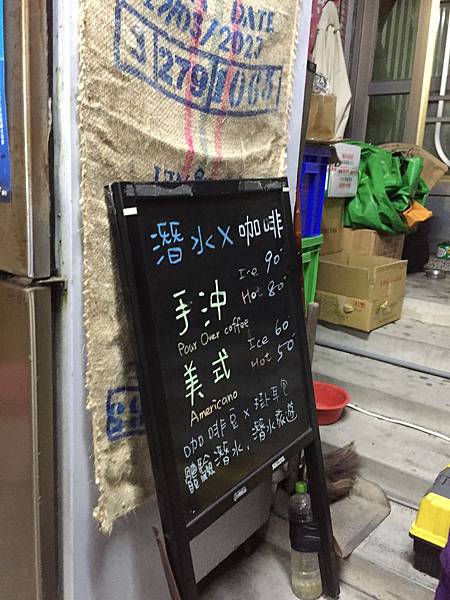 DATE
潛水 X 咖啡
手沖
Ice 90
Hot 80
Pour Over coffee
美式
Ice 60
Hot 50
Americano
咖啡豆 X 掛耳包
體驗潛水, 潛水旅遊